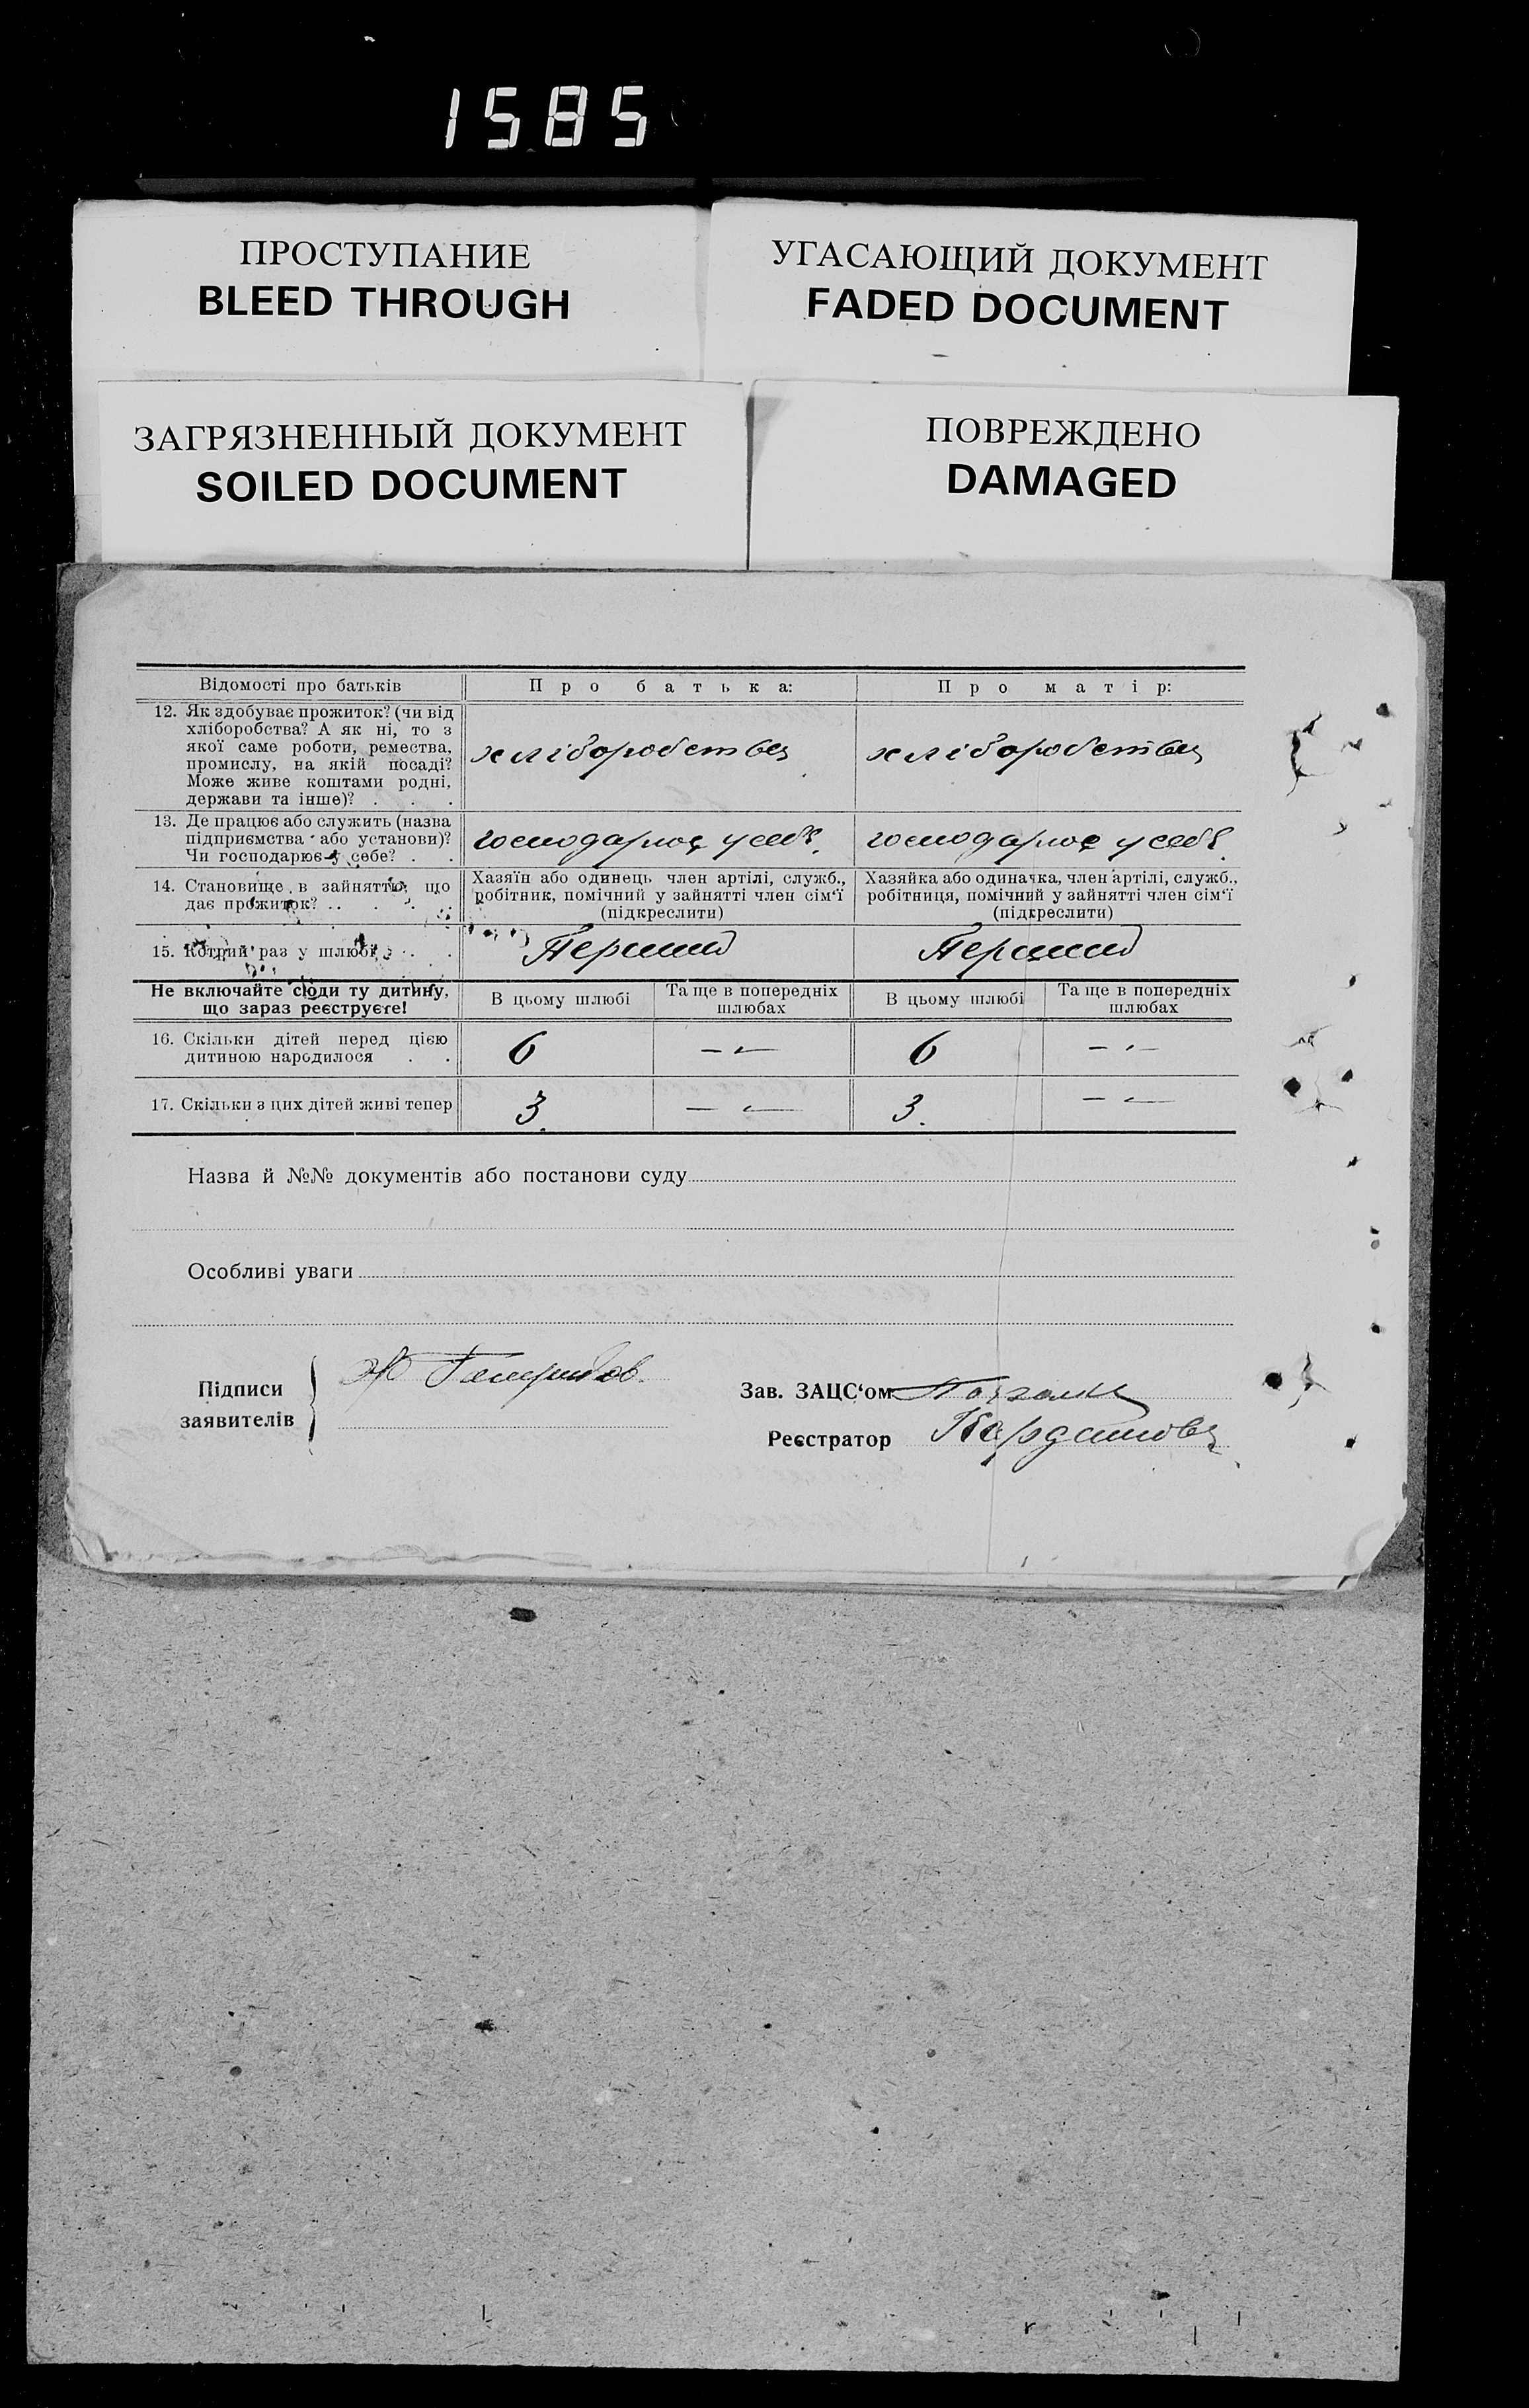 1585
ПРОСТУПАНИЕ
BLEED THROUGH
УГАСАЮЩИЙ ДОКУМЕНТ
FADED DOCUMENT
ЗАГРЯЗНЕННЫЙ ДОКУМЕНТ
SOILED DOCUMENT
ПОВРЕЖДЕНО
DAMAGED
Відомості про батьків
Про батька:
Про матір:
12. Як здобуває прожиток? (чи від
хліборобства? А як ні, то з
якої саме роботи, ремества,
промислу, на якій посаді?
Може живе коштами родні,
держави та інше)? . . .
хліборобства
хліборобства
13. Де працює або служить (назва
підприємства або установи)?
Чи господарює у себе? . .
господарює у себе.
господарює у себе.
14. Становище в зайнятті, що
дає прожиток? . . . . .
Хазяїн або одинець член артілі, служб.,
робітник, помічний у зайнятті член сім‘ї
(підкреслити)
Хазяйка або одиначка, член артілі, служб.,
робітниця, помічний у зайнятті член сім‘ї
(підкреслити)
15. Котрий раз у шлюбі . .
Перший
Перший
Не включайте сюди ту дитину,
що зараз реєструєте!
В цьому шлюбі
Та ще в попередніх
шлюбах
В цьому шлюбі
Та ще в попередніх
шлюбах
16. Скільки дітей перед цією
дитиною народилося . .
6
— „ —
6
— „ —
17. Скільки з цих дітей живі тепер
3.
— „ —
3.
— „ —
Назва й №№ документів або постанови суду
Особливі уваги
Підписи
заявителів
Зав. ЗАЦС‘ом
Реєстратор